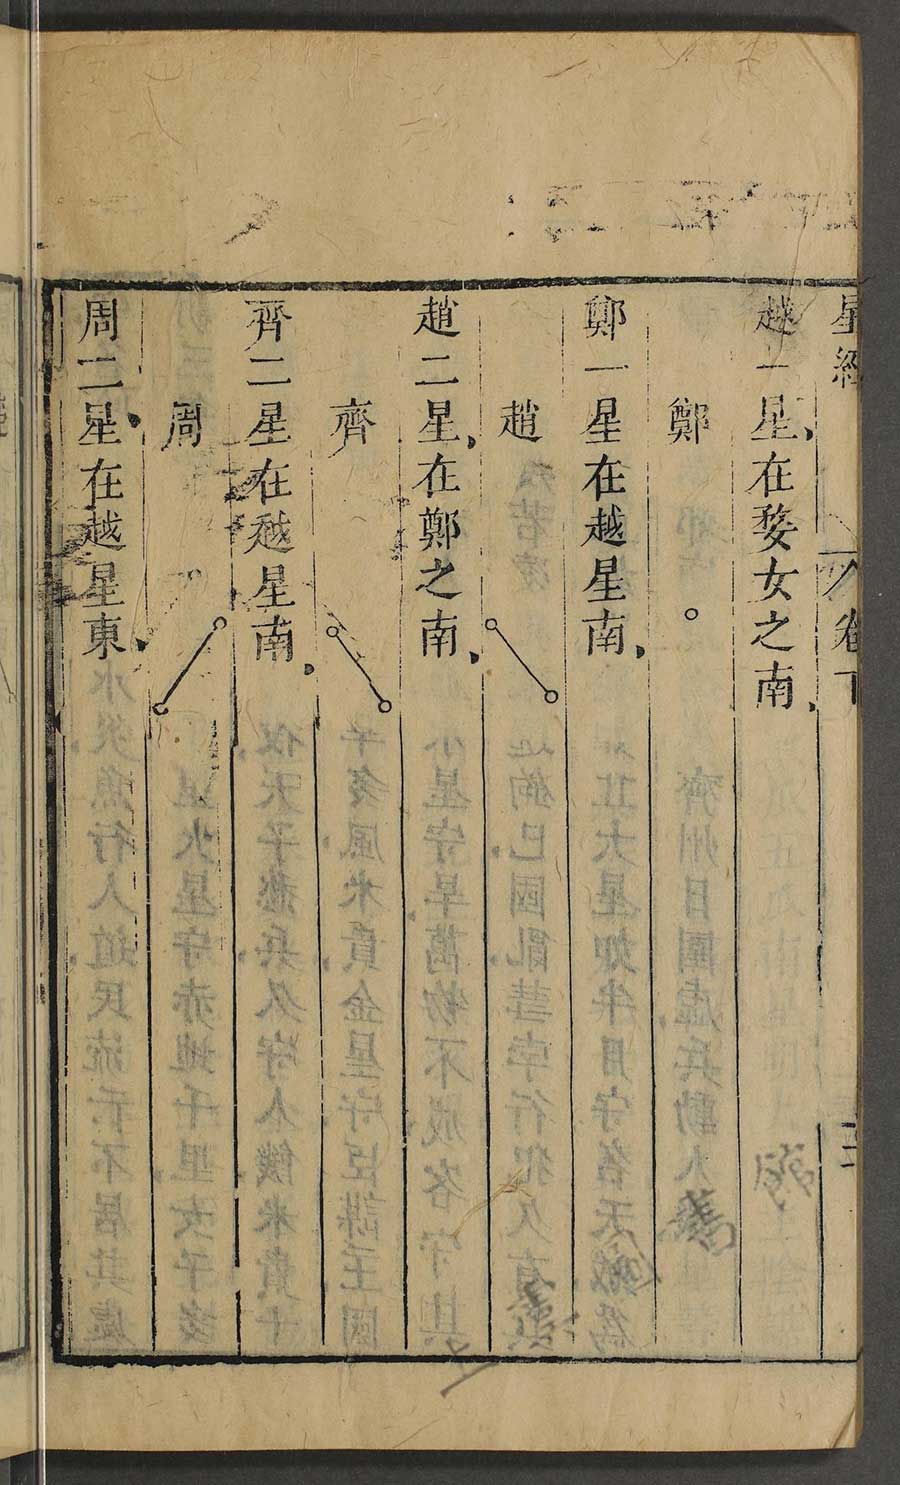 星經 卷下
越一星在婺女之南
鄭
鄭一星在越星南
趙
趙二星在鄭之南
齊
齊二星在越星南
周
周二星在越星東